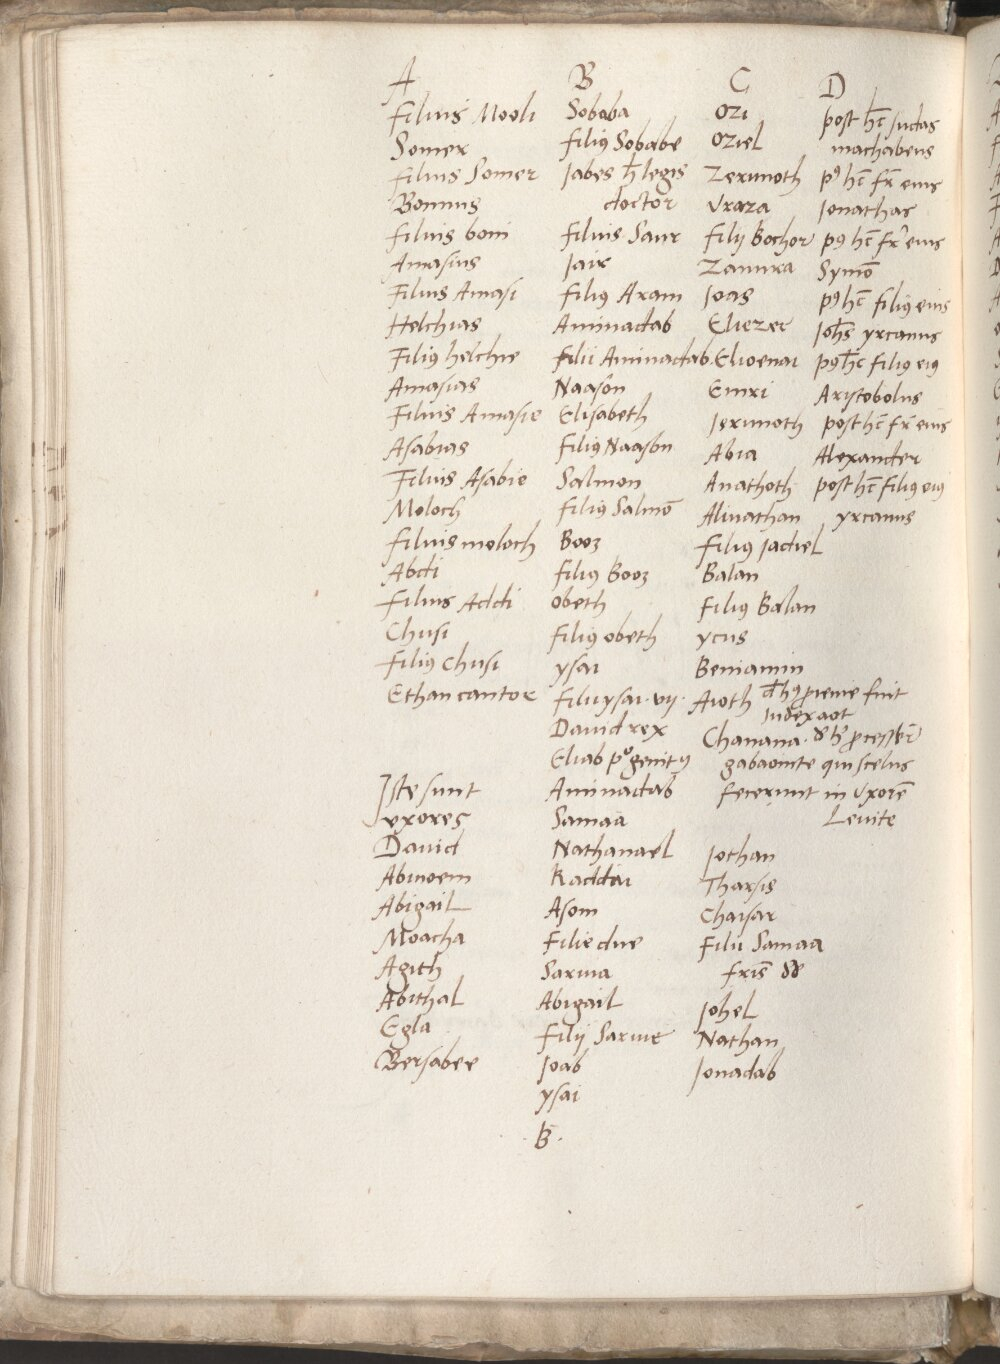 A
Filius Mooli
Somer
filius Somer
Bonnus
filius boni
Amasius
Filius Amasi
Helchias
Filiꝰ helchie
Amasias
Filius Amasie
Asabias
Filius Asabie
Moloch
filius moloch
Abdi
Filius Addi
Chusi
Filiꝰ Chusi
Ethan cantor
Iste sunt
vxores
Dauid
Abinoem
Abigail
Moacha
Agith
Abithal
Egla
Bersabee
B
Sobaba
filiꝰ Sobabe
Jabes h̄ legis
doctor
filius Saur
Jair
filiꝰ Aram
Aminadab
filii Aminadab
Naason
Elisabeth
filiꝰ Naason
Salmon
filiꝰ Salmō
Booz
filiꝰ Booz
obeth
filiꝰ obeth
ysai
filii ysai · vij ·
Dauid rex
Eliab pͦgenitꝰ
Aminadab
Samaa
Nathanael
Raddai
Asom
Filie due
Saruia
Abigail
Filij Saruie
Joab
ysai
· B ·
C
Ozi
Oziel
Zerimoth
Vraza
filij Bochor
Zamira
Joas
Eliezer
Elioenai
Emri
Jerimoth
Abia
Anathoth
Almathan
Filiꝰ Jadiel
Balan
Filiꝰ Balan
ycus
Beniamin
Aioth
fuit
Chanana
gabaonite qui scelus
fecerunt in vxorē
Leuite
Jothan
Tharsis
Chaisar
Filii Samaa
fris̄
Johel
Nathan
Jonadab
D
post hc̄ Judas
machabeus
pꝰ hc̄ fr̄ eius
Jonathas
pꝰ hc̄ fr̄ eius
Symō
pꝰ hc̄ filiꝰ eius
Joh̄s yrcanus
pꝰ hc̄ filiꝰ eiꝰ
Aristobolus
post hc̄ fr̄ eius
Alexander
post hc̄ filiꝰ eiꝰ
yrcanus